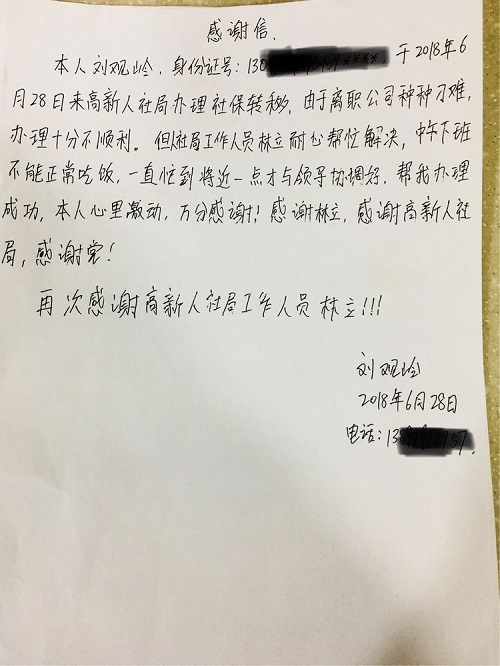 感谢信.
本人刘观岭,身份证号:130 于2018年6
月28日来高新人社局办理社保转移,由于离职公司种种刁难,
办理十分不顺利。但人社局工作人员林立耐心帮忙解决,中午下班
不能正常吃饭,一直忙到将近一点才与领导协调好.帮我办理
成功,本人心里激动,万分感谢!感谢林立,感谢高新人社
局,感谢党!
再次感谢高新人社局工作人员林立!!!
刘观岭
2018年6月28日
电话:13